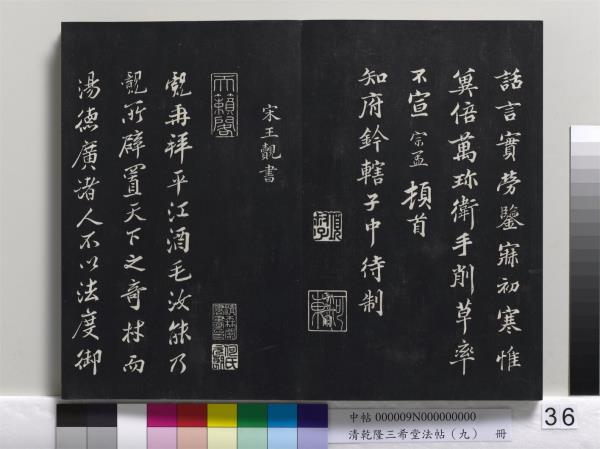 話言實勞鑒寐初寒惟
兾倍萬珎衛手削草率
不宣 宗孟 頓首
知府鈐轄子中待制
宋王覿書
天籟閣
覿再拜平江酒毛汝能乃
覿所辟置天下之奇材而
湯德廣者人不以法度御
中帖 000009N000000000
清乾隆三希堂法帖（九） 冊
36